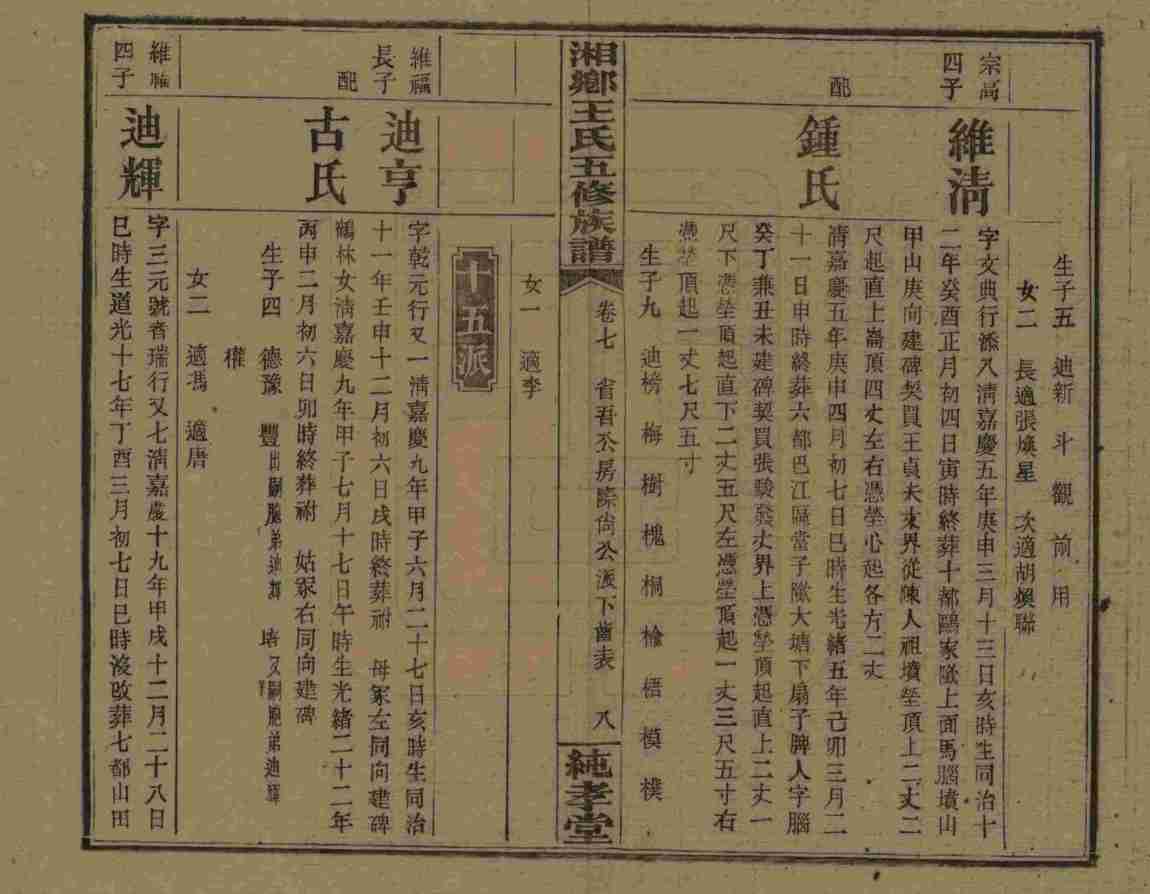 生子五 迪新 斗 觀 前 用
女二 長適張煥星 次適胡煥聯
宗高四子
維清
字文典行添八清嘉慶五年庚申三月十三日亥時生同治十
二年癸酉正月初四日寅時終葬十都鷗家隞上面馬腦墳山
甲山庚向建碑契買王貞夫丈界從陳人祖墳塋頂上二丈二
尺起直上崙頂四丈左右憑塋心起各方二丈
配
鍾氏
清嘉慶五年庚申四月初七日巳時生光緒五年己卯三月二
十一日申時終葬六都巴江區堂子隞大塘下扇子脾人字腦
癸丁兼丑未建碑契買張駿發丈界上憑塋頂起直上二丈一
尺下憑塋頂起直下二丈五尺左憑塋頂起一丈三尺五寸右
憑塋頂起一丈七尺五寸
生子九 迪榜 梅 樹 槐 桐 檜 梧 模 樸
湘鄉王氏五修族譜
卷七 省吾公房 尚公派下齒表 八
純孝堂
女一 適李
十五派
維福長子
迪亨
字乾元行又一清嘉慶九年甲子六月二十七日亥時生同治
十一年壬申十二月初六日戌時終葬祔 母冢左同向建碑
配
古氏
鶴林女清嘉慶九年甲子七月十七日午時生光緒二十二年
丙申二月初六日卯時終葬祔 姑冢右同向建碑
生子四 德豫 豐出嗣胞弟迪 培又嗣胞弟迪輝
權
女二 適馮 適唐
維福四子
迪輝
字三元號春瑞行又七清嘉慶十九年甲戌十二月二十八日
巳時生道光十七年丁酉三月初七日巳時沒改葬七都山田